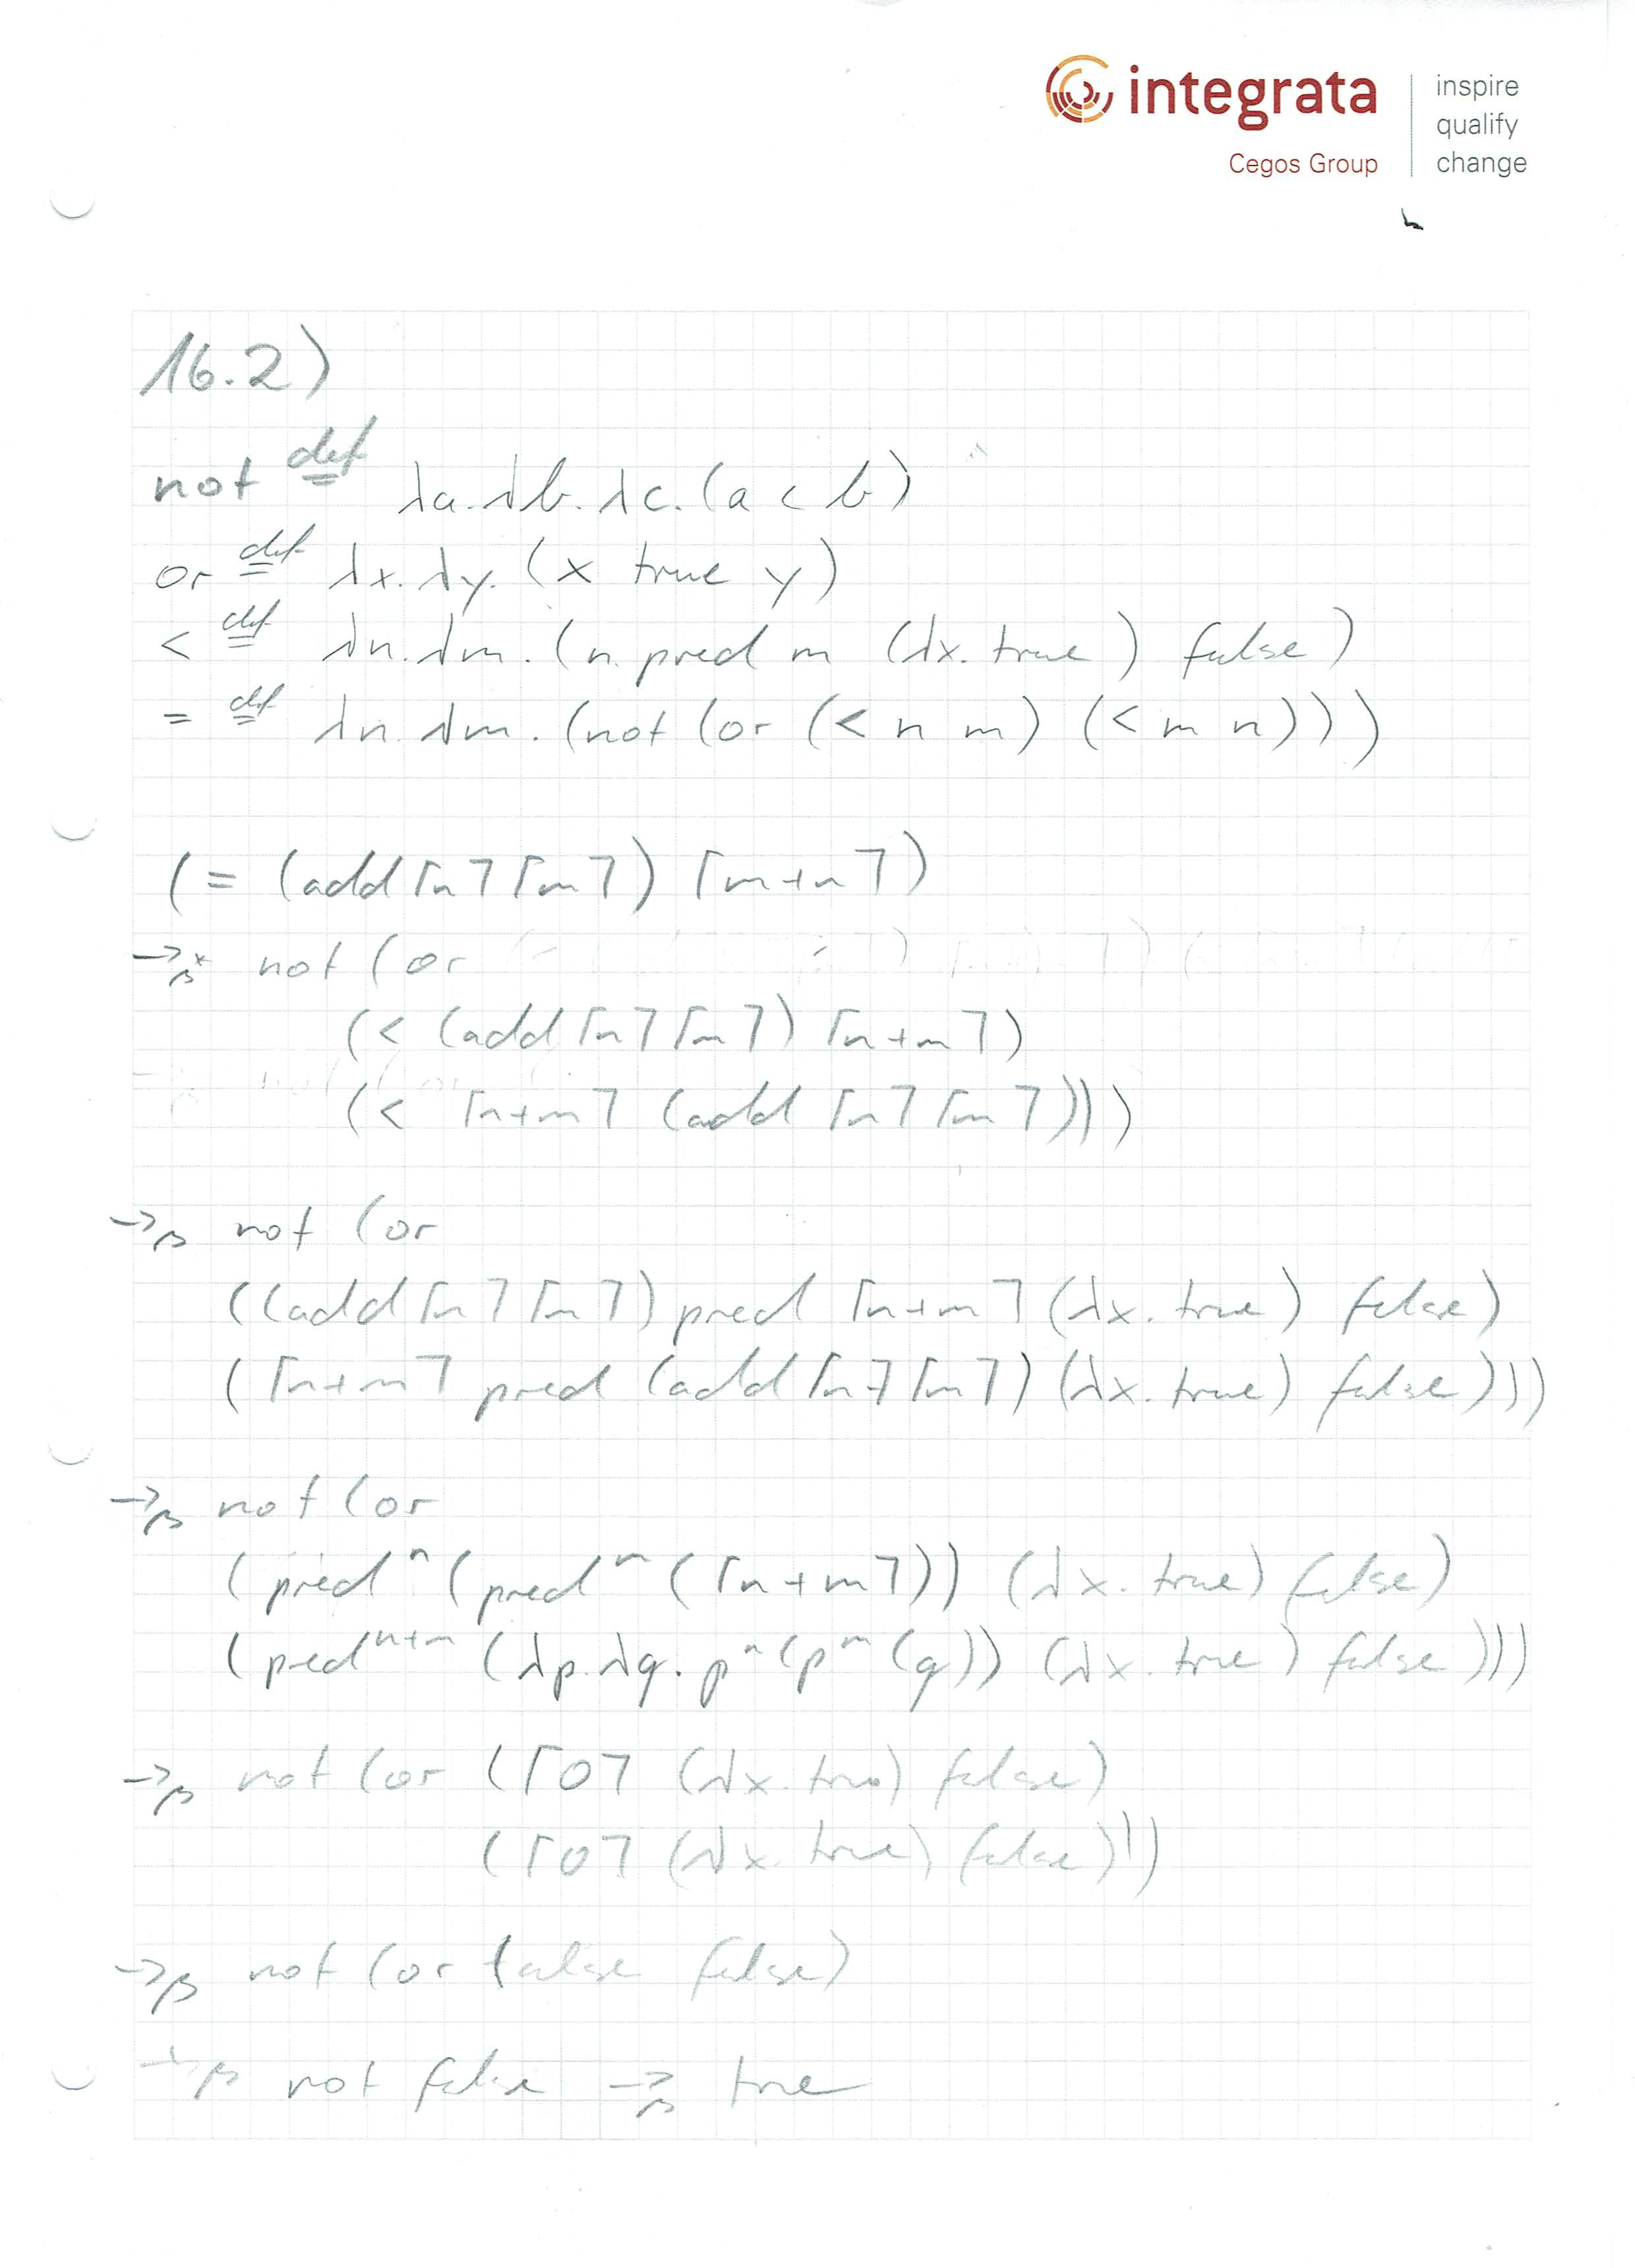 integrata
Cegos Group
inspire
qualify
change
16.2)
not ≝ λa.λb.λc.(a c b)
or ≝ λx.λy.(x true y)
< ≝ λn.λm.(n pred m (λx.true) false)
= ≝ λn.λm.(not (or (< n m) (< m n)))
(= (add ⌈n⌉ ⌈m⌉) ⌈m+n⌉)
→β* not (or
(< (add ⌈n⌉ ⌈m⌉) ⌈n+m⌉)
(< ⌈n+m⌉ (add ⌈n⌉ ⌈m⌉)))
→β not (or
((add ⌈n⌉ ⌈m⌉) pred ⌈n+m⌉ (λx.true) false)
(⌈n+m⌉ pred (add ⌈n⌉ ⌈m⌉) (λx.true) false)))
→β not (or
(predⁿ (predᵐ (⌈n+m⌉)) (λx.true) false)
(predⁿ⁺ᵐ (λp.λq.pⁿ(pᵐ(q)) (λx.true) false)))
→β not (or (⌈0⌉ (λx.true) false)
(⌈0⌉ (λx.true) false)))
→β not (or false false)
→β not false →β true